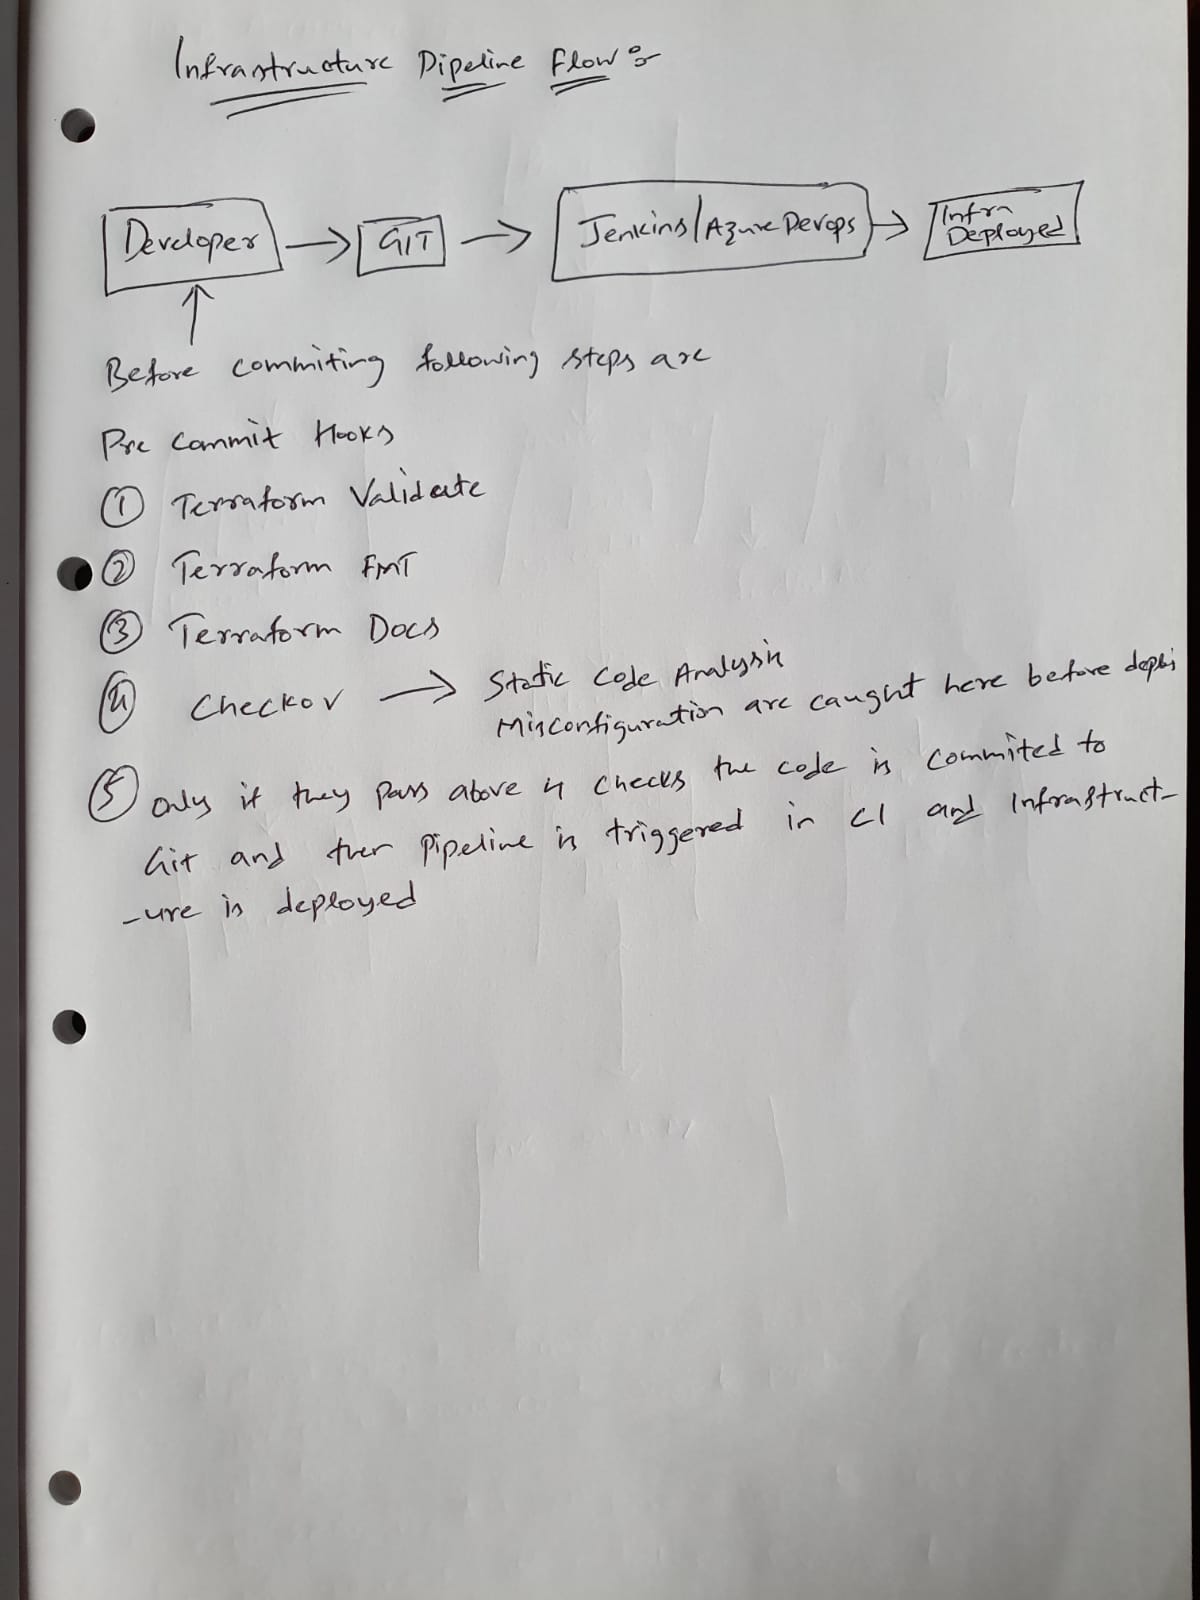 Infrastructure Pipeline Flow:-
Developer → GIT → Jenkins/Azure Devops → Infra Deployed
Before commiting following steps are
Pre Commit Hooks
① Terraform Validate
② Terraform FMT
③ Terraform Docs
④ Checkov → Static Code Analysis
Misconfiguration are caught here before
⑤ Only if they pass above 4 checks the code is commited to
Git and then Pipeline is triggered in CI and Infrastruct-
-ure is deployed